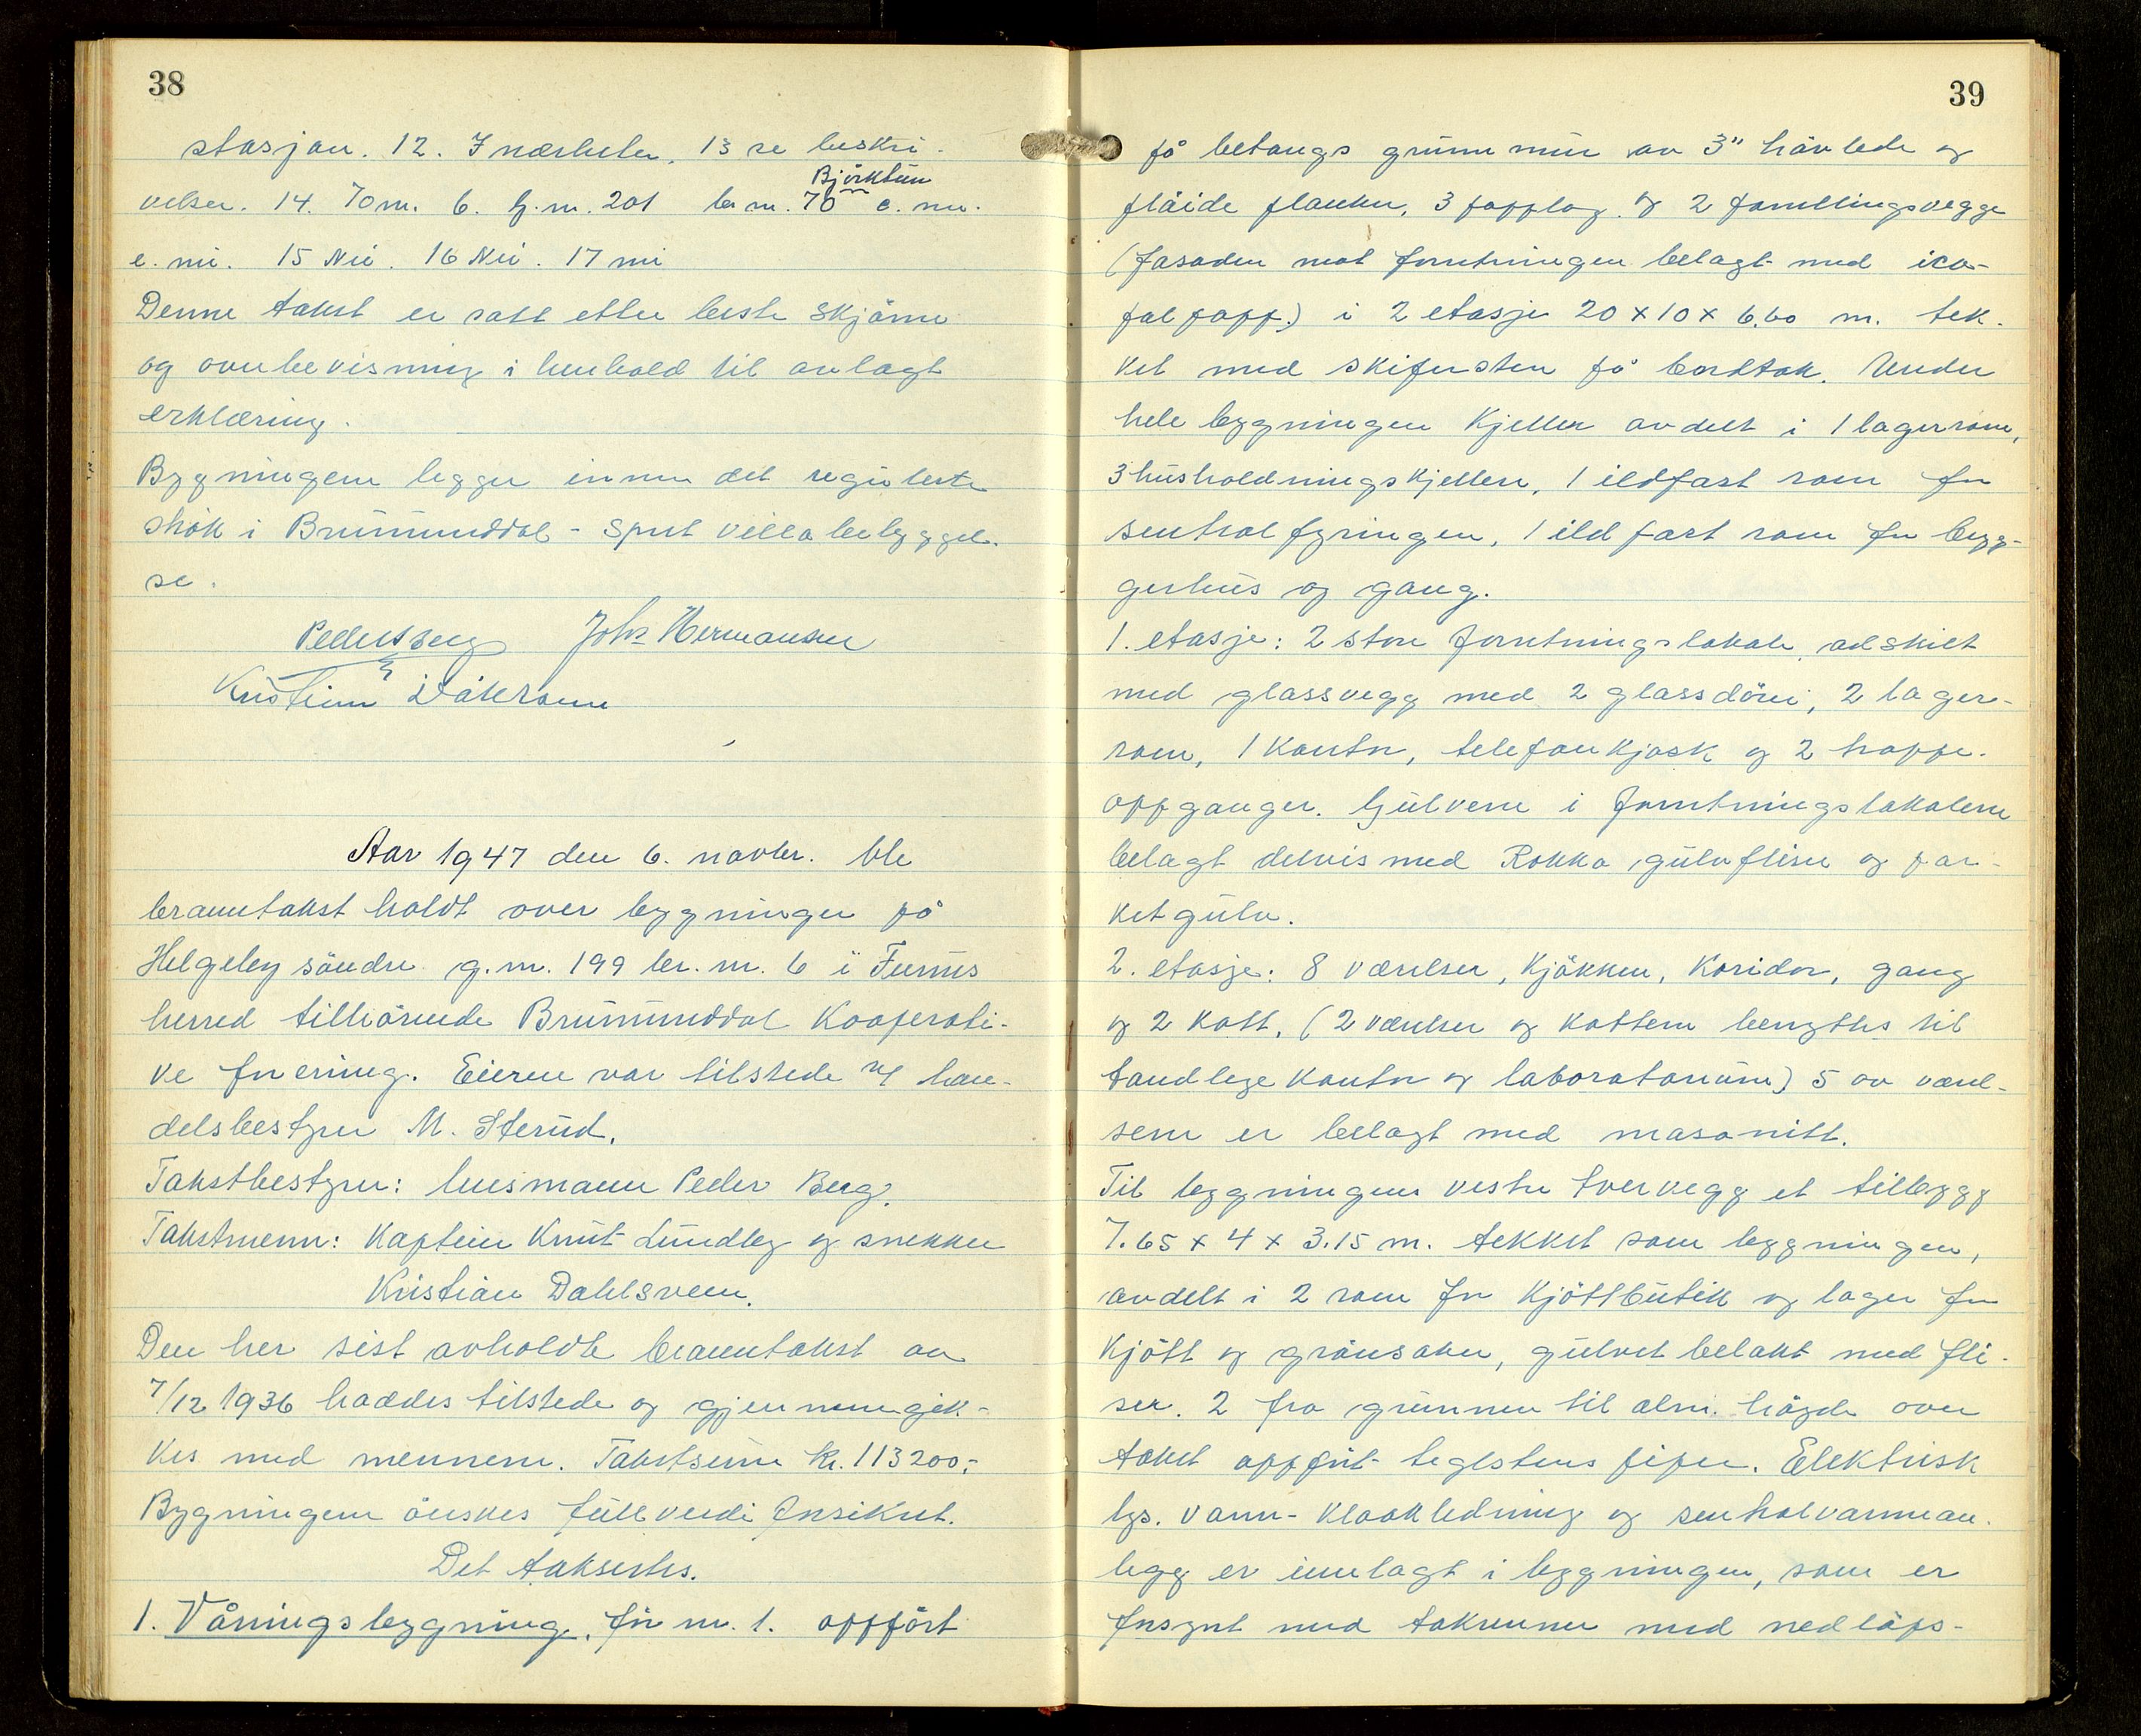 38
stasjon. 12. I nærheten, 13 se beskri-
Björktun
velser. 14. 70 m. 6. g.nr. 201 br.nr. 70 c. nei.
e. nei. 15 Nei. 16 Nei. 17 nei
Denne takst er satt etter beste skjönn
og overbevisning i henhold til avlagt
erklæring.
Bygningene ligger innen det regulerte
strök i Brumunddal - Spret villabebyggel-
se.
Peder Berg John Hermansen
Kristian
Aar 1947 den 6. novbr. ble
branntakst holdt over bygninger på
Helgeby söndre g.nr. 199 br.nr. 6 i Furnes
herred tilhörende Brumunddal Kooperati-
ve forening. Eieren var tilstede v/ han-
delsbestyrer M. Sterud.
Takstbestyrer: lensmann Peder Berg.
Takstmenn: Kaptein Knut Lundby og snekker
Kristian Dahlsveen.
Den her sist avholdte branntakst av
7/12 1936 haddes tilstede og gjennemgik-
kes med mennene. Takstsum kr. 113200,-
Bygningene önskes fullverdi forsikret.
Det taksertes.
1. Våningsbygning, för nr. 1. oppfört
39
på betongs grunnmur av 3" hövlede og
pløide planker, 3 papplag og 2 panelingsvegger
(fasaden mot forretningen belagt med ico-
pal papp.) i 2 etasje 20 x 10 x 6.60 m. tek-
ket med skifersten på bordtak. Under
hele bygningen Kjeller avdelt i 1 lagerrom,
3 husholdningskjellere, 1 ildfast rom for
sentralfyringen, 1 ildfast rom for bryg-
gerhus og gang.
1. etasje: 2 store forretningslokale, adskilt
med glassvegg med 2 glassdörer, 2 lager-
rom, 1 Kontor, telefonkjosk og 2 trappe-
oppganger. Gulvene i forretningslokalene
belagt delvis med Rokko gulvfliser og par-
ketgulv.
2. etasje: 8 værelser, Kjökken, Koridor, gang
og 2 kott, (2 værelser og kottene benyttes til
tandlege kontor og laboratorium) 5 av værel-
sene er belagt med masonitt.
Til bygningens vestre tvervegg et tilbygg
7.65 x 4 x 3.15 m. tekket som bygningen,
avdelt i 2 rom for Kjöttbutik og lager for
Kjött og grönsaker, gulvet belakt med fli-
ser. 2 fra grunnen til alm. höyde over
taket oppfört teglstens piper. Elektrisk
lys. vann- kloakledning og sentralvarmean-
legg er innlagt i bygningen, som er
forsynt med takrenner med nedlöps-